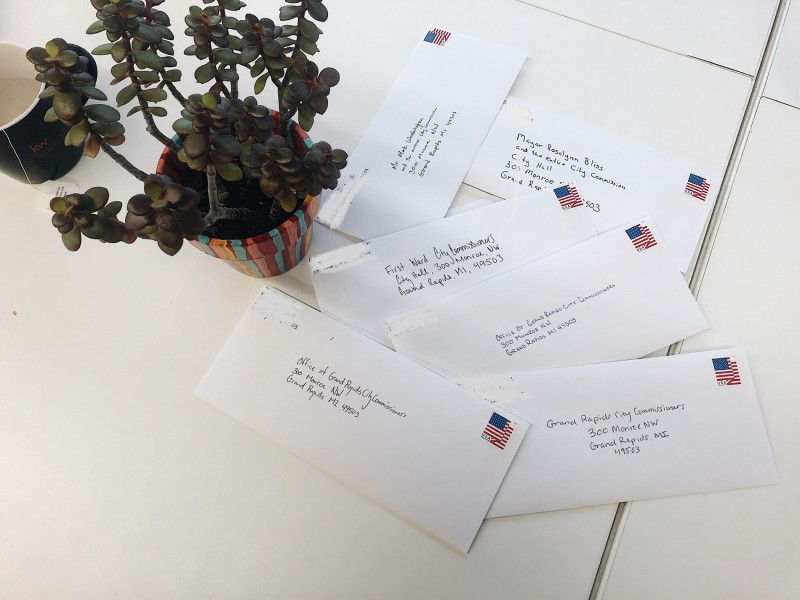 kw
Washington
City Commission
300 Monroe NW
Grand Rapids MI 49503
Mayor Rosalynn Bliss
and the entire City Commission
City Hall
300 Monroe
Grand Rapi
First Ward City Commissioners
City Hall, 300 Monroe, NW
Grand Rapids, MI, 49503
Office of Grand Rapids City Commissioners
300 Monroe NW
Grand Rapids MI 49503
Office of Grand Rapids City Commissioners
300 Monroe NW
Grand Rapids MI 49503
Grand Rapids City Commissioners
300 Monroe NW
Grand Rapids, MI
49503
USA